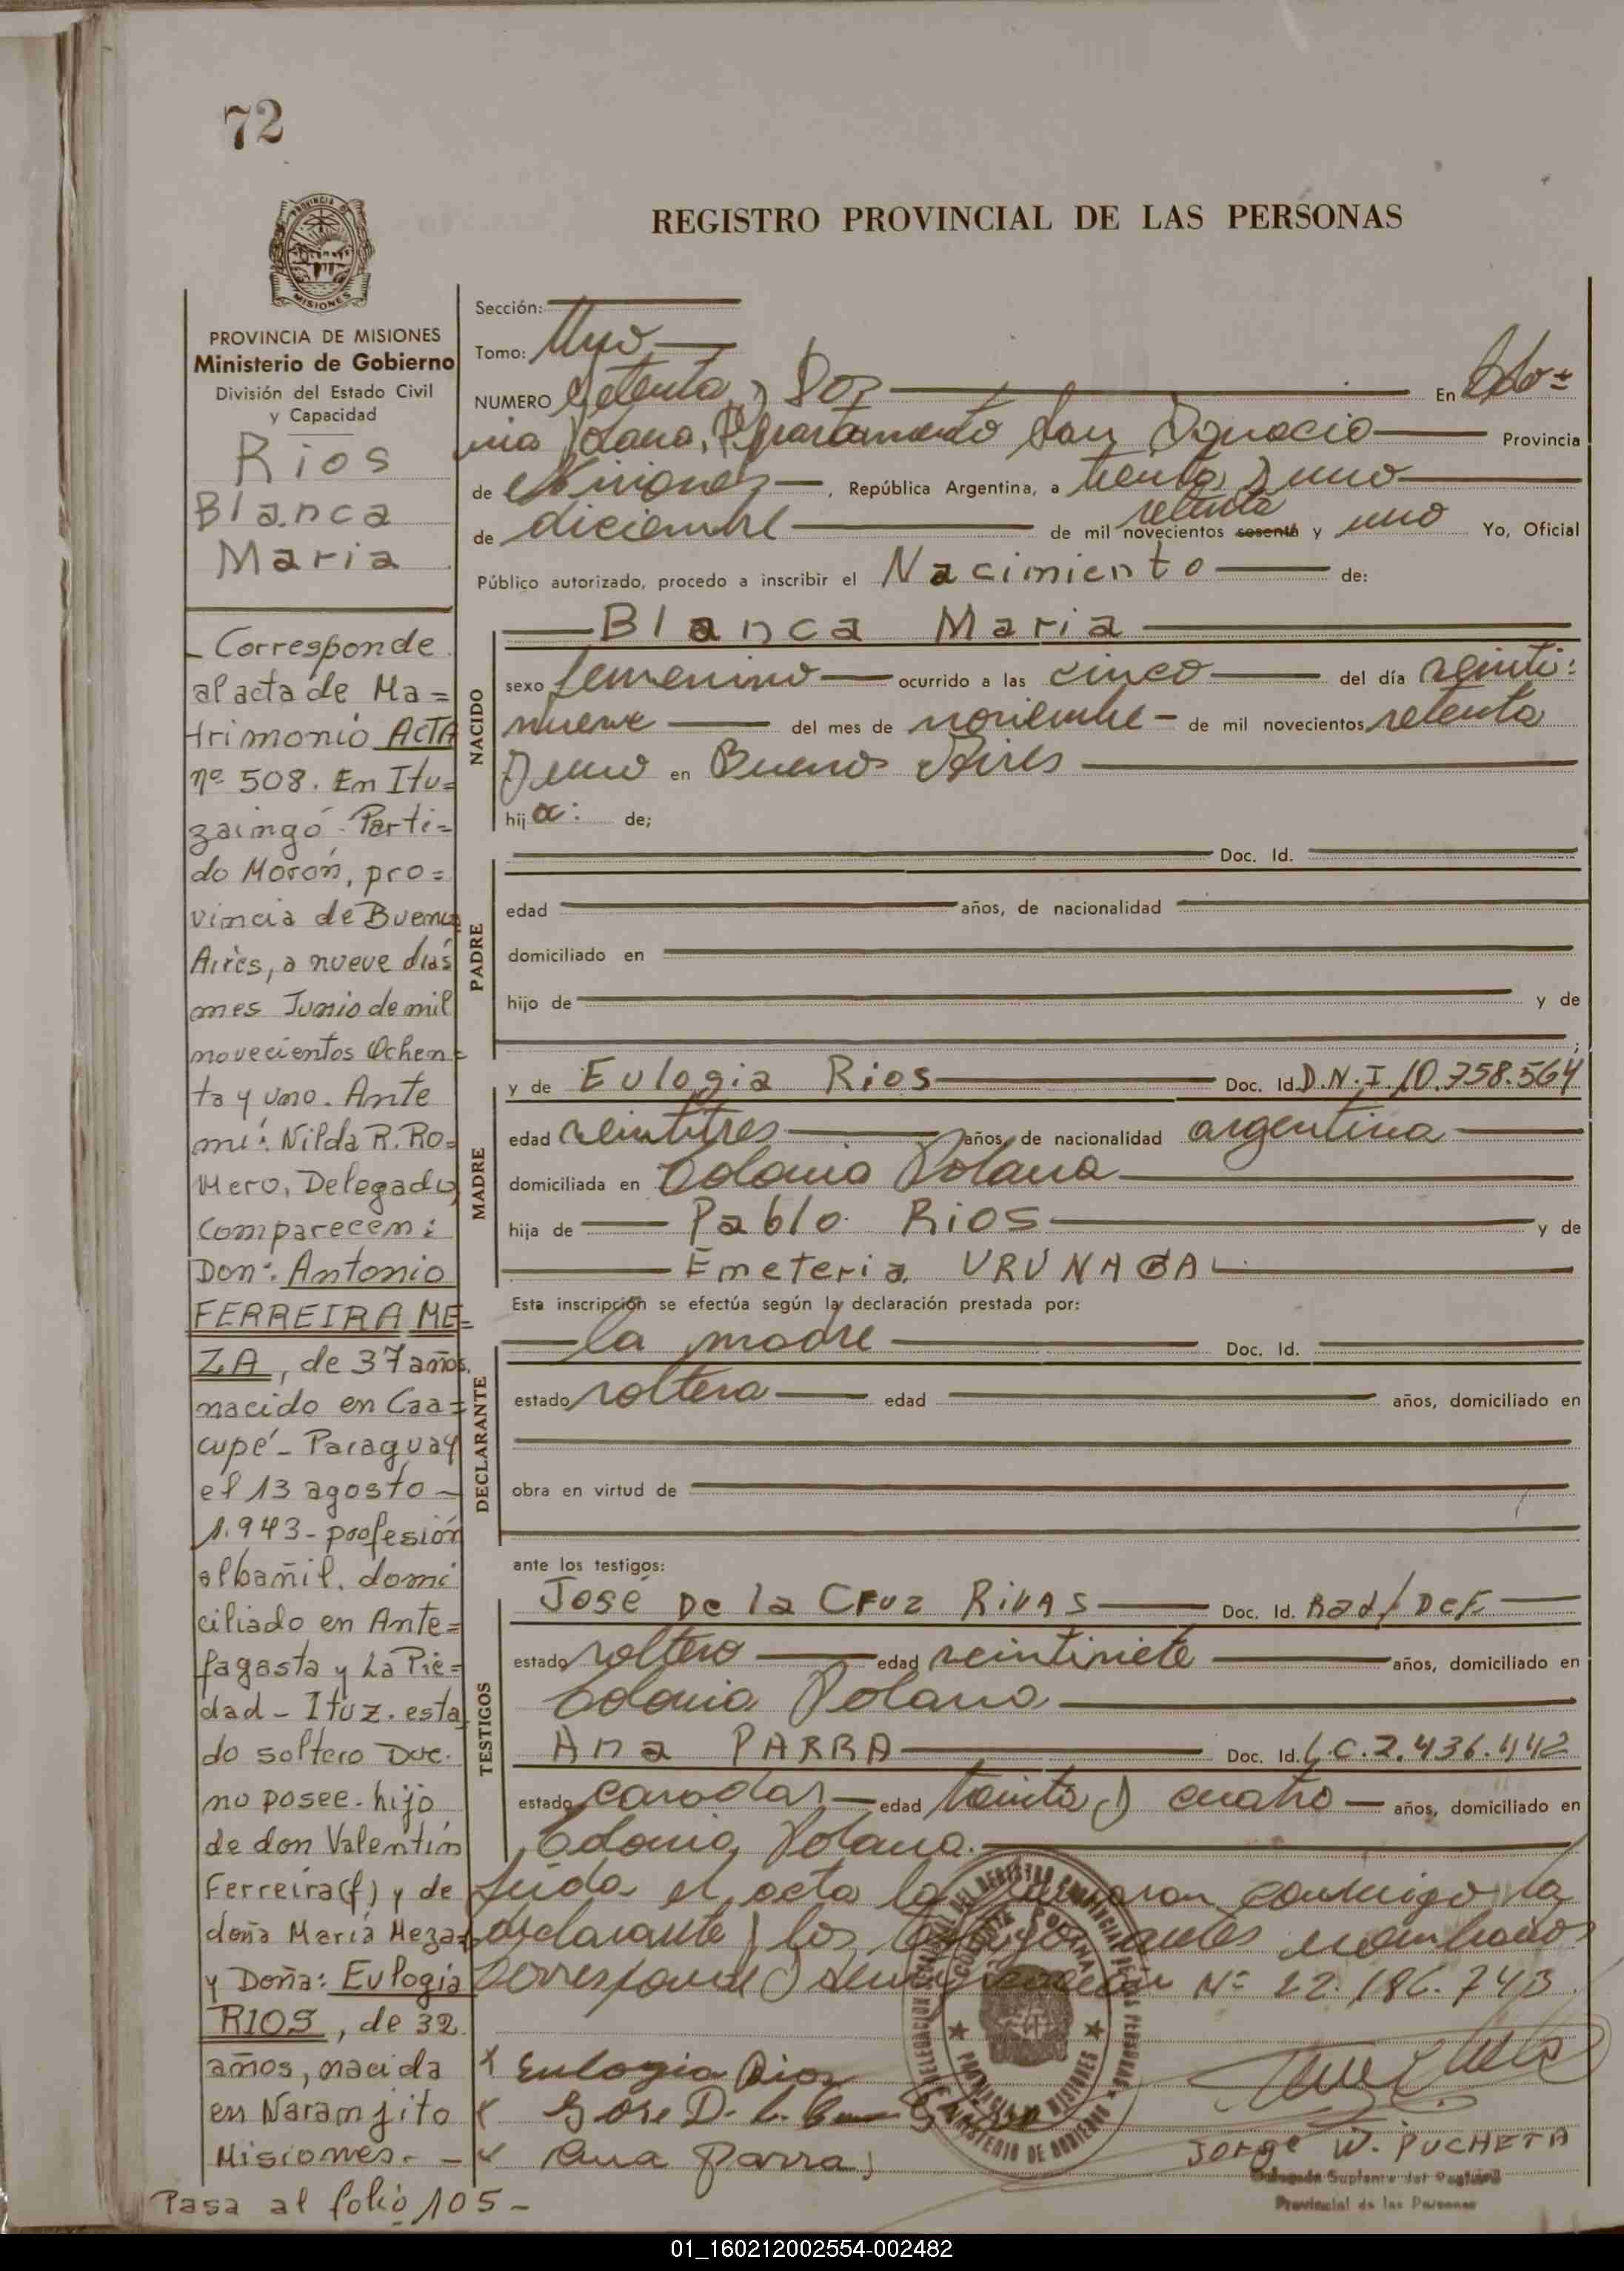 72
REGISTRO PROVINCIAL DE LAS PERSONAS
PROVINCIA DE MISIONES
Ministerio de Gobierno
División del Estado Civil
y Capacidad
Rios
Blanca
Maria
- Corresponde
al acta de Ma=
trimonio ACTA
nº 508. En Itu=
zaingó - Parti=
do Morón, pro=
vincia de Buenos
Aires, a nueve días
mes Junio de mil
novecientos Ochen=
ta y uno. Ante
mi: Nilda R. RO=
mero, Delegado
Comparecen:
Don: Antonio
FERREIRA ME=
ZA, de 37 años,
nacido en Caa=
cupé - Paraguay
el 13 agosto -
1.943 - profesión
albañil. domi
ciliado en Ante=
fagasta y La Pie=
dad - Ituz. esta
do soltero Doc.
no posee - hijo
de don Valentín
Ferreira (f) y de
doña María Meza=
y Doña: Eulogia
RIOS, de 32
años, nacida
en Naranjito
Misiones. -
Pasa al folio 105 -
Sección:
Tomo: Uno
NUMERO Setenta y Dos En Colo=
nia Polana, Departamento San Ignacio Provincia
de Misiones, República Argentina, a treinta y uno
de diciembre de mil novecientos sesenta setenta y uno Yo, Oficial
Público autorizado, procedo a inscribir el Nacimiento de:
NACIDO
Blanca Maria
sexo femenino ocurrido a las cinco del día veinti=
nueve del mes de noviembre de mil novecientos setenta
y uno en Buenos Aires
hija: de;
PADRE
Doc. Id.
edad años, de nacionalidad
domiciliado en
hijo de y de
;
MADRE
y de Eulogia Rios Doc. Id. D.N.I 10.758.564
edad veintitres años, de nacionalidad argentina
domiciliada en Colonia Polana
hija de Pablo Rios y de
Emeteria
Esta inscripción se efectúa según la declaración prestada por:
DECLARANTE
la madre Doc. Id.
estado soltera edad años, domiciliado en
obra en virtud de
ante los testigos:
TESTIGOS
José De la Cruz Rivas Doc. Id. Rad/Def.
estado soltero edad veintisiete años, domiciliado en
Colonia Polana
Ana PARRA Doc. Id. L.C. 2.436.442
estado casada edad treinta y cuatro años, domiciliado en
Colonia Polana.
Leida el acta la firmaron conmigo la
declarante y los testigos antes nombrados
Corresponde Nº 22.186.743
Eulogia Rios
Jose D. l. Cruz
Ana Parra
Jorge W. PUCHETA
Delegado Suplente del Registro
Provincial de las Personas
PROVINCIA DE MISIONES
MINISTERIO DE GOBIERNO
01_160212002554-002482